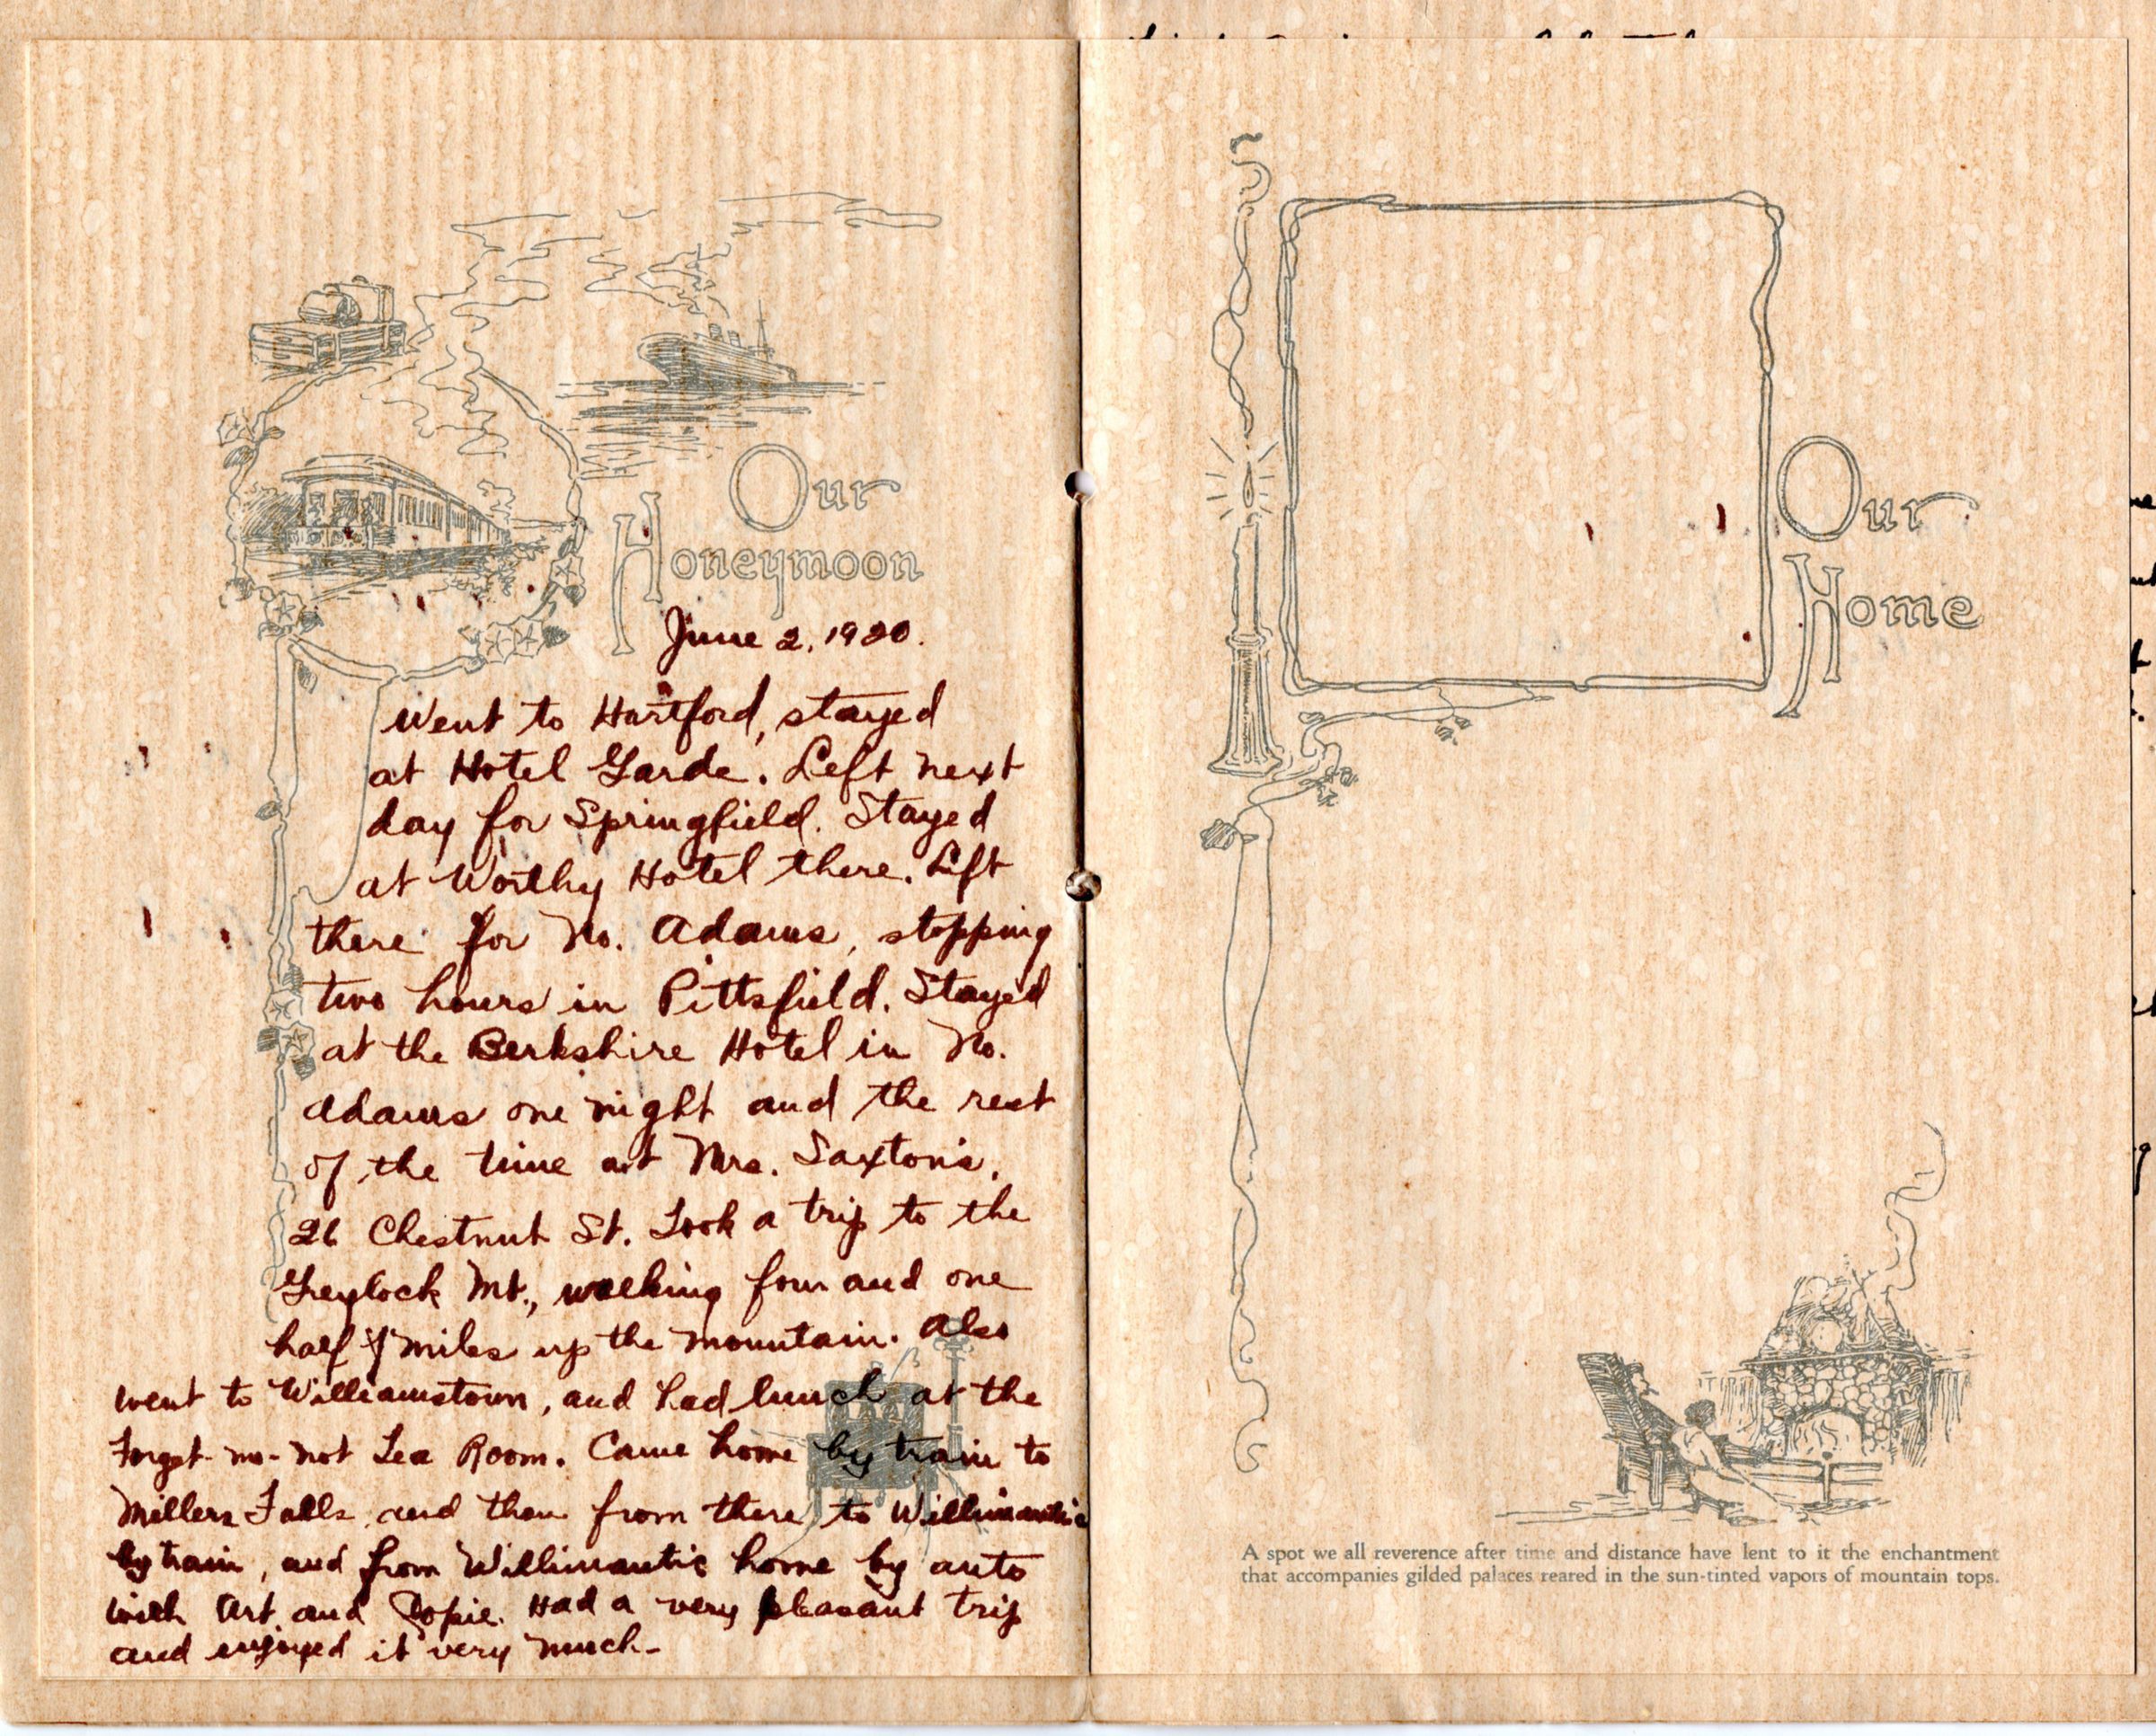 Our
Honeymoon
June 2, 1920.
Went to Hartford, stayed
at Hotel Garde. Left next
day for Springfield. Stayed
at Worthy Hotel there. Left
there for No. Adams, stopping
two hours in Pittsfield. Stayed
at the Berkshire Hotel in No.
Adams one night and the rest
of the time at Mrs. Saxton's,
26 Chestnut St. Took a trip to the
Greylock Mt., walking four and one
half miles up the mountain. Also
went to Williamstown, and had lunch at the
Forget-me-not Tea Room. Came home by train to
Millers Falls and then from there to Willimantic
by train, and from Willimantic home by auto
with Art and Popie. Had a very pleasant trip
and enjoyed it very much-
Our
Home
A spot we all reverence after time and distance have lent to it the enchantment
that accompanies gilded palaces reared in the sun-tinted vapors of mountain tops.